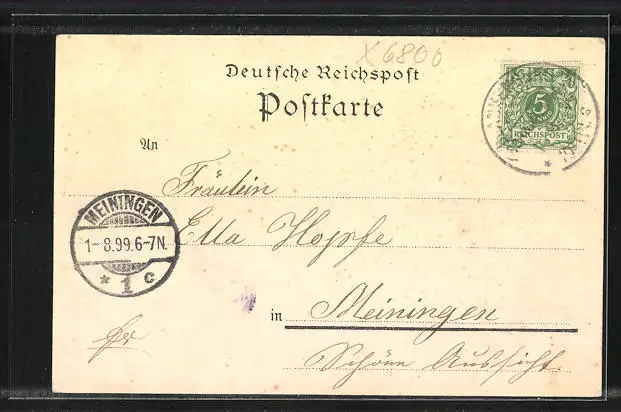 X 6800
Deutsche Reichspost
Postkarte
5
REICHSPOST
An
Fräulein
MEININGEN
1-8.99.6-7N.
* 1 c
Ella Hopfe
in Meiningen
Schöne Aussicht.